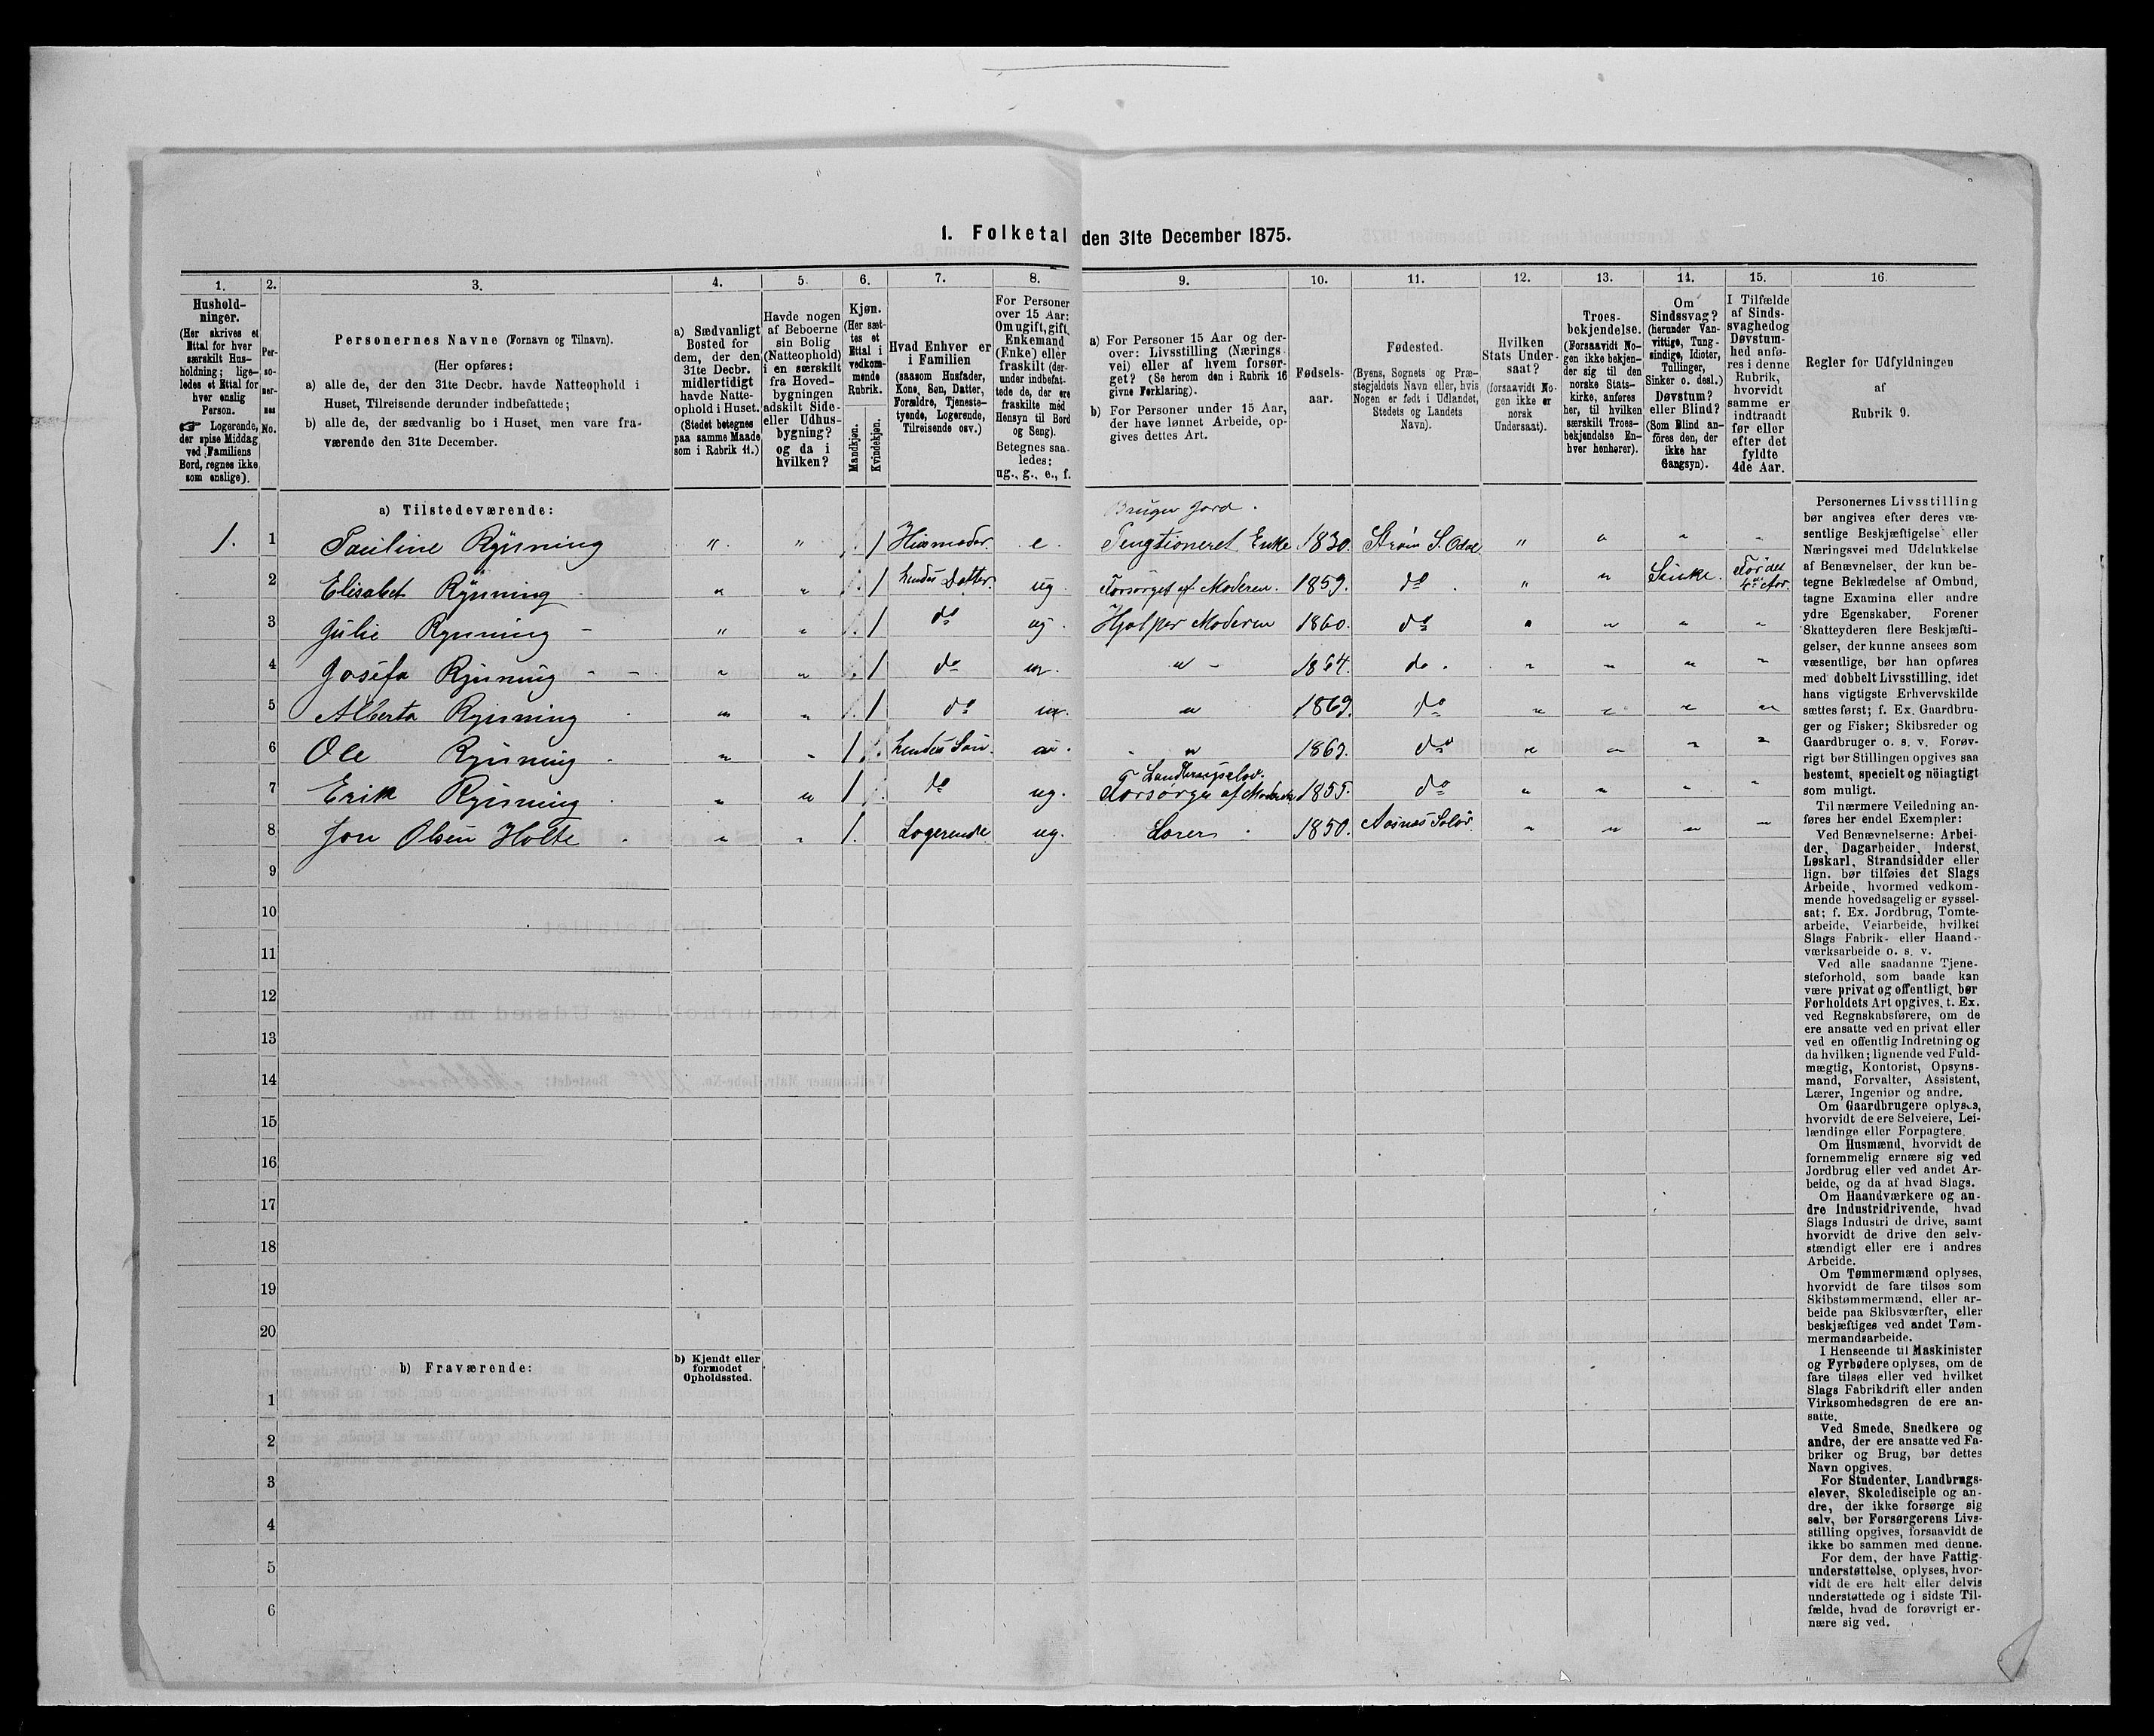 1. Folketal den 31te December 1875.
1.
2.
3.
4.
5.
6.
7.
8.
9.
10.
11.
12.
13.
14.
15.
16.
Hushold-
ninger.
(Her skrives et
Ettal for hver
særskilt Hus-
holdning; lige-
ledes et Ettal for
hver enslig
Person.
☞ Logerende,
der spise Middag
ved Familiens
Bord, regnes ikke
som enslige).
Per-
so-
ner-
nes
No.
Personernes Navne (Fornavn og Tilnavn).
(Her opføres:
a) alle de, der den 31te Decbr. havde Natteophold i
Huset, Tilreisende derunder indbefattede;
b) alle de, der sædvanlig bo i Huset, men vare fra-
værende den 31te December.
a) Sædvanligt
Bosted for
dem, der den
31te Decbr.
midlertidigt
havde Natte-
ophold i Huset.
(Stedet betegnes
paa samme Maade
som i Rubrik 11.)
Havde nogen
af Beboerne
sin Bolig
(Natteophold)
i en særskilt
fra Hoved-
bygningen
adskilt Side-
eller Udhus-
bygning?
og da i
hvilken?
Kjøn.
(Her sæt-
tes et
Ettal i
vedkom-
mende
Rubrik.
Mandkjøn.
Kvindekjøn.
Hvad Enhver er
i Familien
(saasom Husfader,
Kone, Søn, Datter,
Forældre, Tjeneste-
tyende, Logerende,
Tilreisende osv.)
For Personer
over 15 Aar:
Om ugift, gift,
Enkemand
(Enke) eller
fraskilt (der-
under indbefat-
tede de, der ere
fraskilte med
Hensyn til Bord
og Seng).
Betegnes saa-
ledes:
ug., g., e., f.
a) For Personer 15 Aar og der-
over: Livsstilling (Nærings-
vei) eller af hvem forsør-
get? (Se herom den i Rubrik 16
givne Forklaring).
b) For Personer under 15 Aar,
der have lønnet Arbeide, op-
gives dettes Art.
Fødsels-
aar.
Fødested.
(Byens, Sognets og Præ-
stegjeldets Navn eller, hvis
Nogen er født i Udlandet,
Stedets og Landets
Navn).
Hvilken
Stats Under-
saat?
(forsaavidt No-
gen ikke er
norsk
Undersaat).
Troes-
bekjendelse.
(Forsaavidt No-
gen ikke bekjen-
der sig til den
norske Stats-
kirke, anføres
her, til hvilken
særskilt Troes-
bekjendelse En-
hver henhører).
Om
Sindssvag?
(herunder Van-
vittige, Tung-
sindige, Idioter,
Tullinger,
Sinker o. desl.)
Døvstum?
eller Blind?
(Som Blind an-
føres den, der
ikke har
Gangsyn).
I Tilfælde
af Sinds-
svaghed og
Døvstum-
hed anfø-
res i denne
Rubrik,
hvorvidt
samme er
indtraadt
før eller
efter det
fyldte
4de Aar.
Regler for Udfyldningen
af
Rubrik 9.
a) Tilstedeværende:
Bruger Jord.
1. 1 Pauline Rynning " " 1 Husmoder. e. Pengtioneret Enke 1830. Strøm S. Odal " " " "
2 Elisabet Rynning " " 1 hendes Datter. ug. Forsørget af Moderen. 1859. do " " Sinke. Før det 4de Aar.
3 Julie Rynning " " 1 do ug Hjælper Moderen 1860. do " " " "
4 Josefa Rynning " " 1 do " " 1864. do. " " " "
5 Alberta Rynning " " 1 do " " 1869. do " " " "
6 Ole Rynning " " 1 hendes Søn " " do " " " "
Landbrugselev.
7 Erik Rynning " " 1 do ug. Forsørges af Moderen 1855. do " " " "
8 Jon Olsen Holte " " 1. Logerende ug. Lærer 1850. Aasnæs Solør. " " " "
9
10
11
12
13
14
15
16
17
18
19
20
b) Fraværende:
b) Kjendt eller
formodet
Opholdssted.
1
2
3
4
5
6
Personernes Livsstilling
bør angives efter deres væ-
sentlige Beskjæftigelse eller
Næringsvei med Udelukkelse
af Benævnelser, der kun be-
tegne Beklædelse af Ombud,
tagne Examina eller andre
ydre Egenskaber. Forener
Skatteyderen flere Beskjæfti-
gelser, der kunne ansees som
væsentlige, bør han opføres
med dobbelt Livsstilling, idet
hans vigtigste Erhvervskilde
sættes først; f. Ex. Gaardbru-
ger og Fisker; Skibsreder og
Gaardbruger o. s. v. Forøv-
rigt bør Stillingen opgives saa
bestemt, specielt og nöiagtigt
som muligt.
Til nærmere Veiledning an-
føres her endel Exempler:
Ved Benævnelserne: Arbei-
der, Dagarbeider, Inderst,
Løskarl, Strandsidder eller
lign. bør tilføies det Slags
Arbeide, hvormed vedkom-
mende hovedsagelig er syssel-
sat; f. Ex. Jordbrug, Tomte-
arbeide, Veiarbeide, hvilket
Slags Fabrik- eller Haand-
værksarbeide o. s. v.
Ved alle saadanne Tjene-
steforhold, som baade kan
være privat og offentligt, bør
Forholdets Art opgives, t. Ex.
ved Regnskabsførere, om de
ere ansatte ved en privat eller
ved en offentlig Indretning og
da hvilken; lignende ved Fuld-
mægtig, Kontorist, Opsyns-
mand, Forvalter, Assistent,
Lærer, Ingeniør og andre.
Om Gaardbrugere oplyses,
hvorvidt de ere Selveiere, Lei-
lændinge eller Forpagtere.
Om Husmænd, hvorvidt de
fornemmelig ernære sig ved
Jordbrug eller ved andet Ar-
beide, og da af hvad Slags.
Om Haandværkere og an-
dre Industridrivende, hvad
Slags Industri de drive, samt
hvorvidt de drive den selv-
stændigt eller ere i andres
Arbeide.
Om Tømmermænd oplyses,
hvorvidt de fare tilsøs som
Skibstømmermænd, eller ar-
beide paa Skibsværfter, eller
beskjæftiges ved andet Tøm-
mermandsarbeide.
I Henseende til Maskinister
og Fyrbødere oplyses, om de
fare tilsøs eller ved hvilket
Slags Fabrikdrift eller anden
Virksomhedsgren de ere an-
satte.
Ved Smede, Snedkere og
andre, der ere ansatte ved Fa-
briker og Brug, bør dettes
Navn opgives.
For Studenter, Landbrugs-
elever, Skoledisciple og an-
dre, der ikke forsørge sig
selv, bør Forsørgerens Livs-
stilling opgives, forsaavidt de
ikke bo sammen med denne.
For dem, der have Fattig-
understøttelse, oplyses, hvor-
vidt de ere helt eller delvis
understøttede og i sidste Til-
fælde, hvad de forøvrigt er-
nære sig ved.